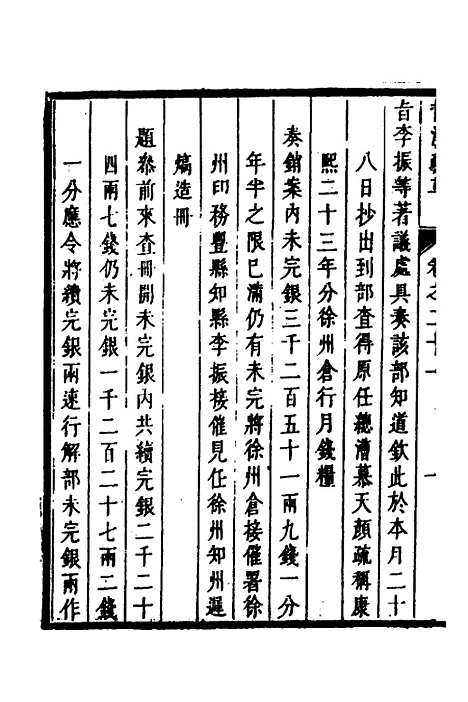 旨李振等著議處具奏該部知道欽此於本月二十
八日抄出到部查得原任總漕慕天顔疏稱康
熙二十三年分徐州倉行月錢糧
奏銷案内未完銀三千二百五十一兩九錢一分
年半之限已滿仍有未完將徐州倉接催署徐
州印務豐縣知縣李振接催見任徐州知州遲
煓造冊
題叅前來查冊開未完銀内共續完銀二千二十
四兩七錢仍未完銀一千二百二十七兩二錢
一分應令將續完銀兩速行解部未完銀兩作